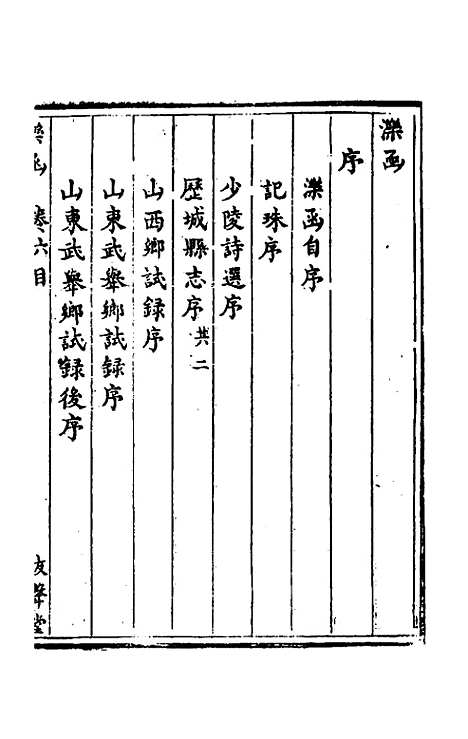 濼函
序
濼函自序
記珠序
少陵詩選序
歷城縣志序 共二
山西鄉試録序
山東武舉鄉試録序
山東武舉鄉試録後序
濼函 卷六目 友聲堂